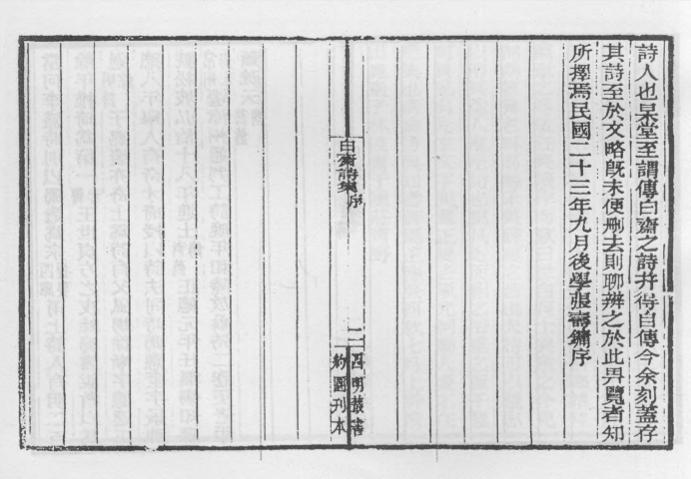 詩人也杲堂至謂傳白齋之詩并得自傳今余刻蓋存
其詩至於文略既未便刪去則聊辨之於此畀覽者知
所擇焉民國二十三年九月後學張壽鏞序
白齋詩集序
二
四明叢書
約園刊本